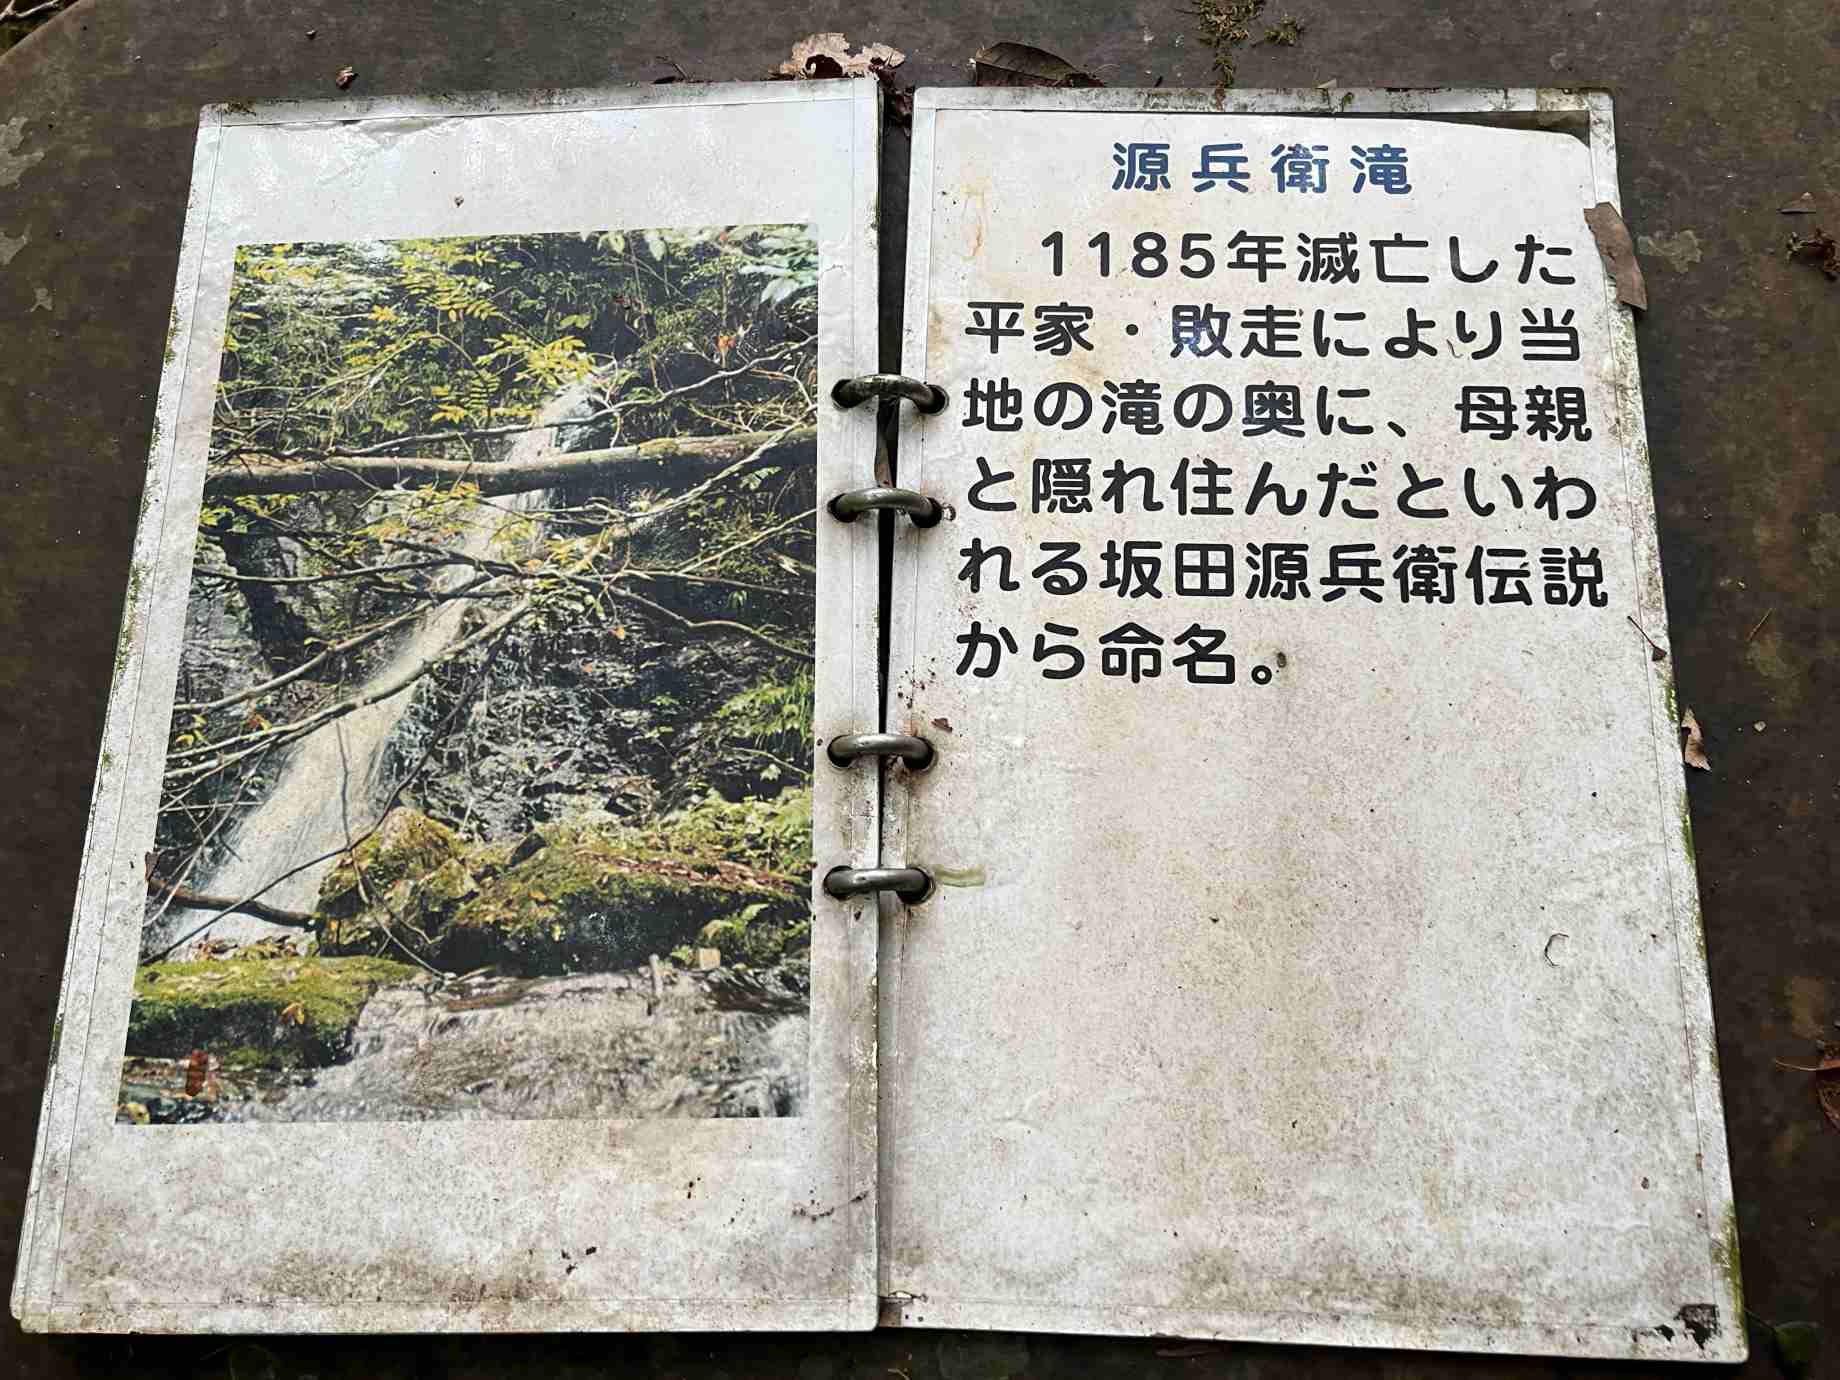 源兵衛滝
1185年滅亡した
平家・敗走により当
地の滝の奥に、母親
と隠れ住んだといわ
れる坂田源兵衛伝説
から命名。